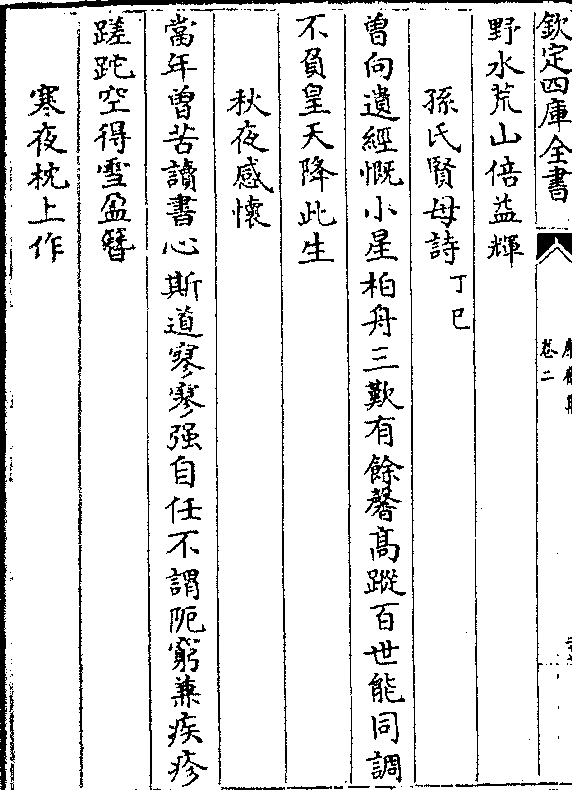 欽定四庫全書
卷二
野水荒山倍益輝
孫氏賢母詩丁巳
曽向遺經慨小星柏舟三歎有餘馨髙蹤百世能同調
不負皇天降此生
秋夜感懷
當年曽苦讀書心斯道寥寥强自任不謂阨窮兼疾疹
蹉跎空得雪盈簪
寒夜枕上作